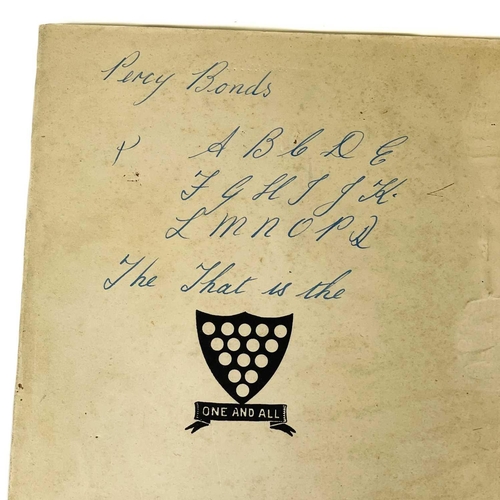 Percy Bonds
P A B C D E
F G H I J K.
L M N O P Q
The That is the
ONE AND ALL